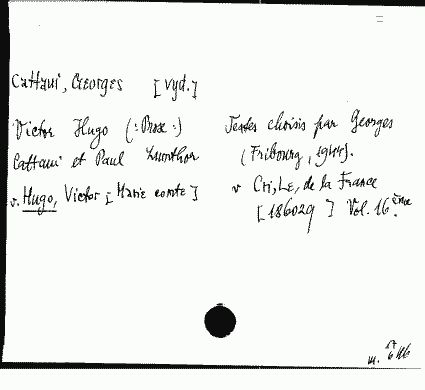 Cattaui, Georges [vyd.]
Victor Hugo (: Prose :) Textes choisis par Georges
Cattaui et Paul Zumthor (Fribourg, 1944).
v. Hugo, Victor [Marie comte] v Cri, Le, de la France
[186029] Vol. 16ème.
m.